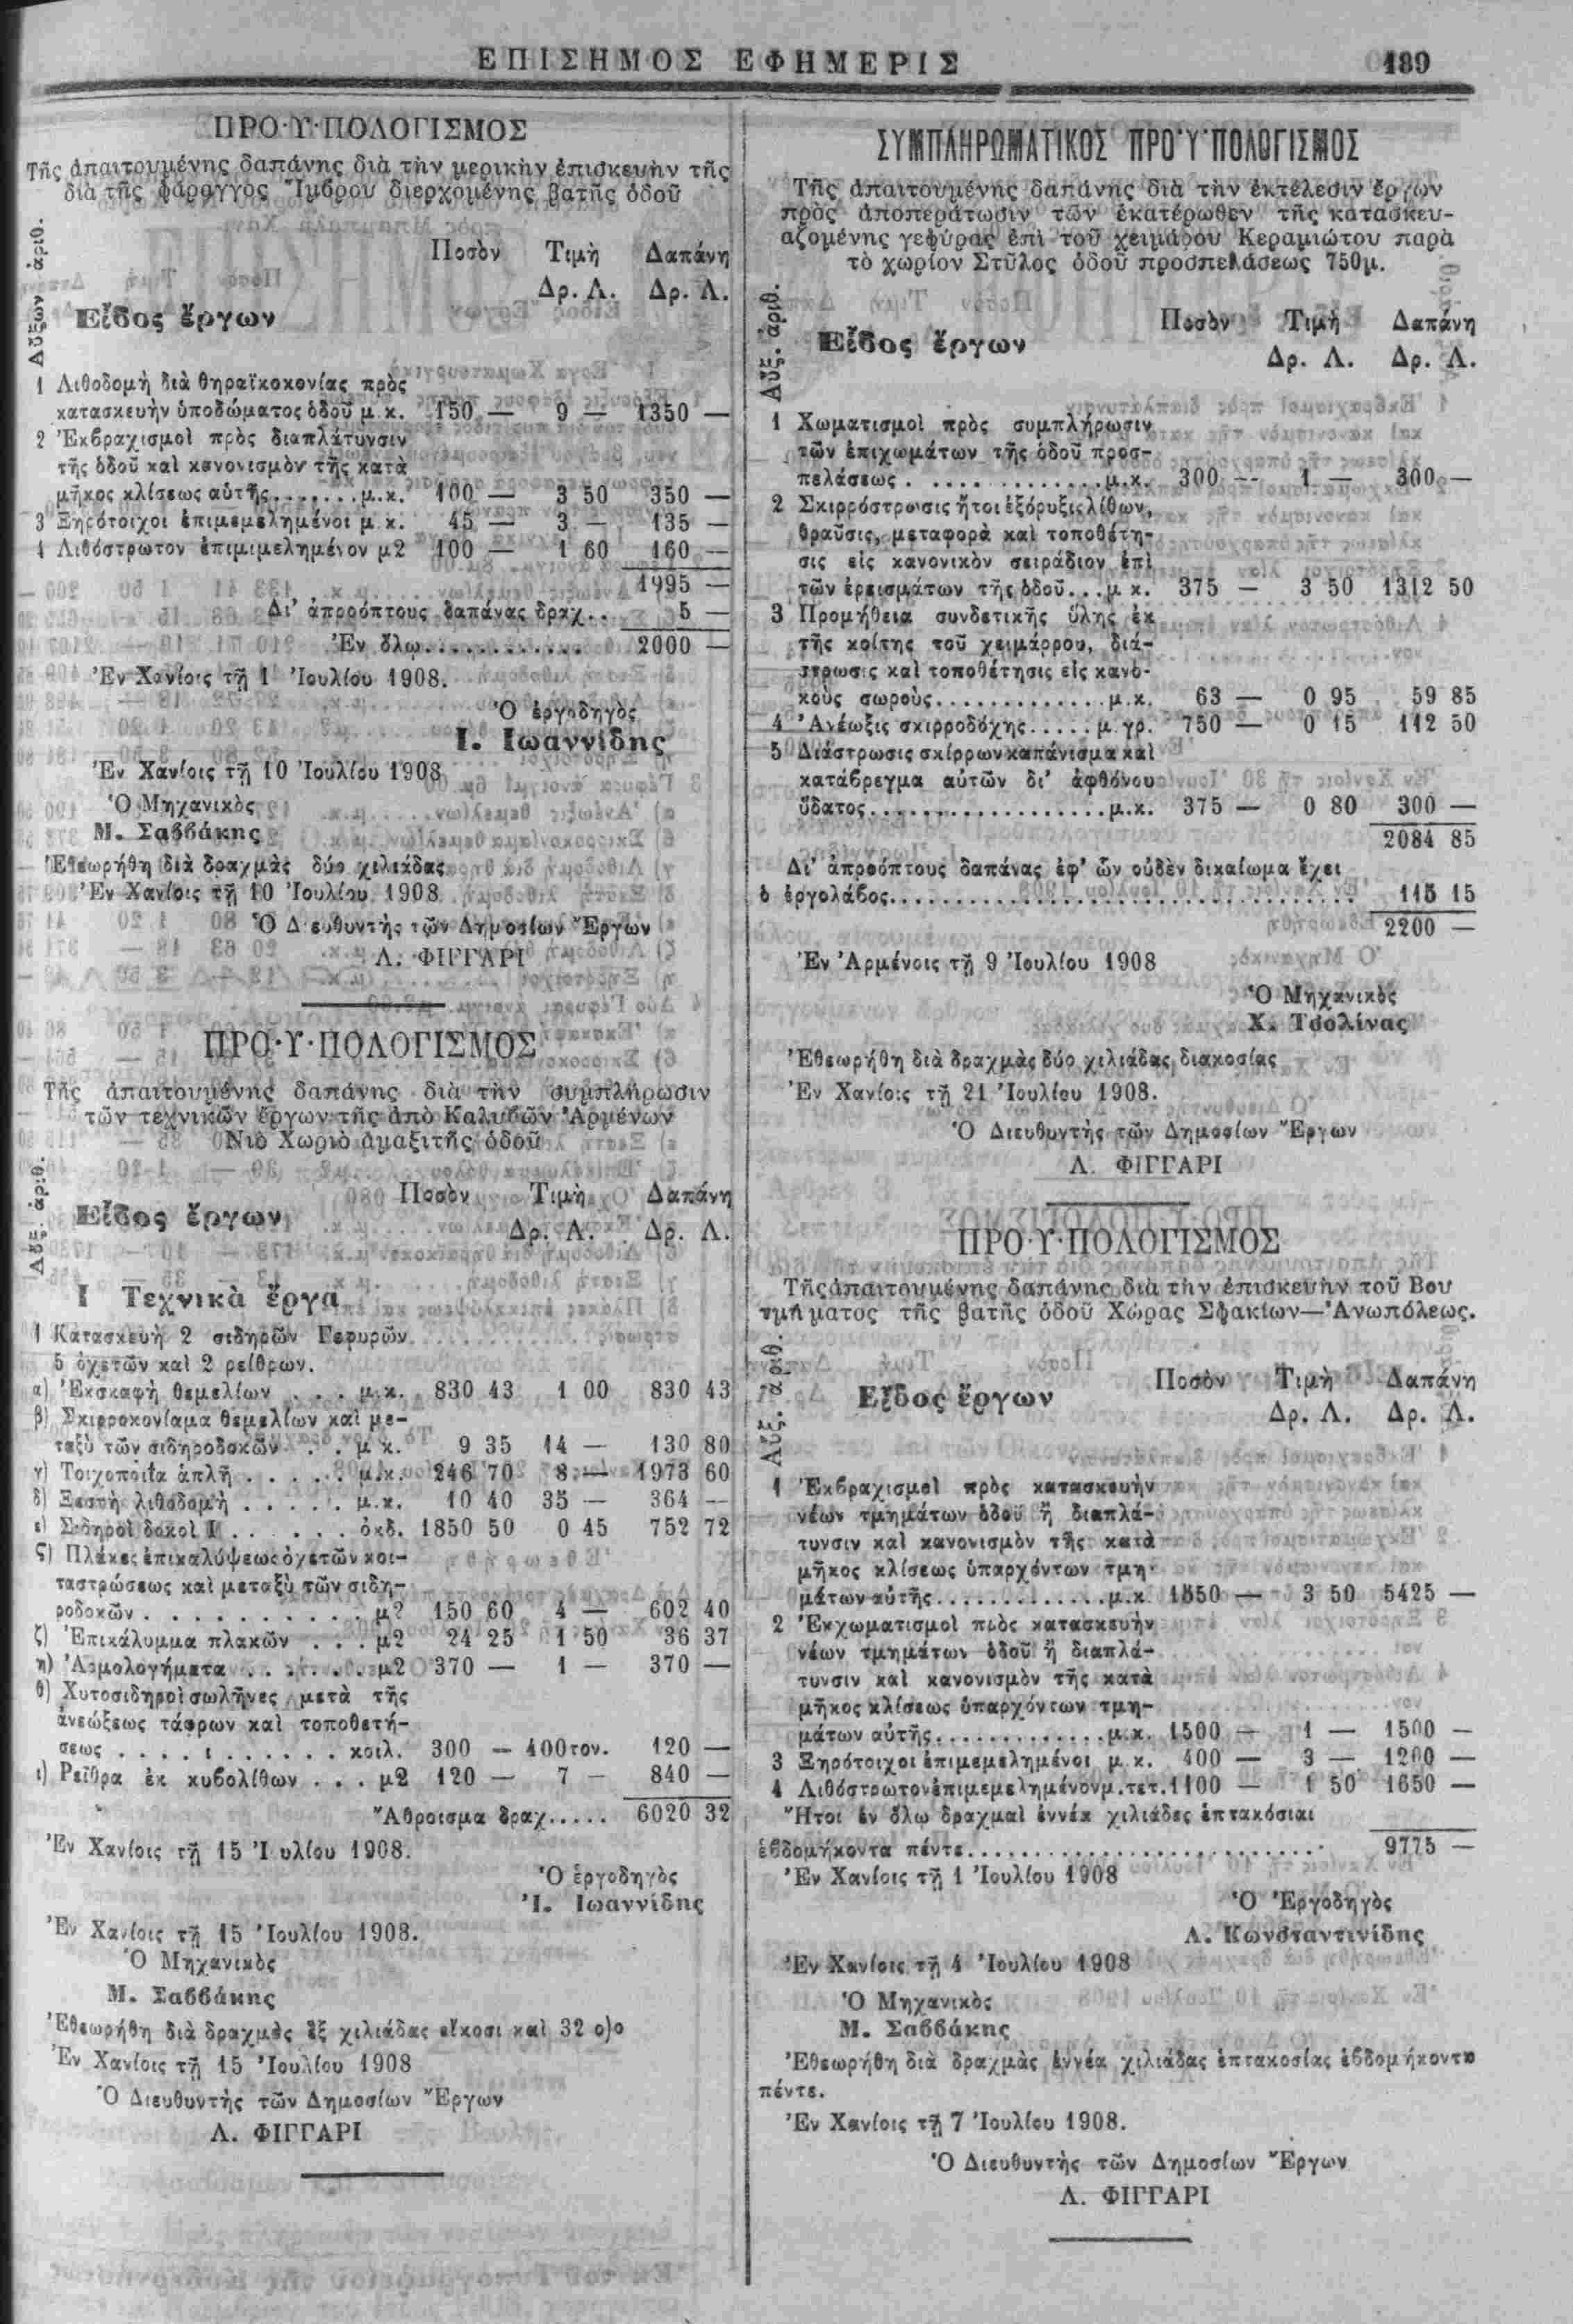 ΕΠΙΣΗΜΟΣ ΕΦΗΜΕΡΙΣ 189
ΠΡΟ·Υ·ΠΟΛΟΓΙΣΜΟΣ
Τῆς ἀπαιτουμένης δαπάνης διὰ τὴν μερικὴν ἐπισκευὴν τῆς
διὰ τῆς φάραγγος Ἴμβρου διερχομένης βατῆς ὁδοῦ
Αὔξων ἀριθ. Εἶδος ἔργων Ποσὸν Τιμὴ Δαπάνη
Δρ. Λ. Δρ. Λ.
1 Λιθοδομὴ διὰ θηραϊκοκονίας πρὸς
κατασκευὴν ὑποδώματος ὁδοῦ μ.κ. 150 — 9 — 1350 —
2 Ἐκβραχισμοὶ πρὸς διαπλάτυνσιν
τῆς ὁδοῦ καὶ κανονισμὸν τῆς κατὰ
μῆκος κλίσεως αὐτῆς.......μ.κ. 100 — 3 50 350 —
3 Ξηρότοιχοι ἐπιμεμελημένοι μ.κ. 45 — 3 — 135 —
4 Λιθόστρωτον ἐπιμιμελημένον μ2 100 — 1 60 160 —
1995 —
Δι' ἀπροόπτους δαπάνας δραχ.. 5 —
Ἐν ὅλῳ............ 2000 —
Ἐν Χανίοις τῇ 1 Ἰουλίου 1908.
Ὁ ἐργοδηγὸς
Ι. Ἰωαννίδης
Ἐν Χανίοις τῇ 10 Ἰουλίου 1908
Ὁ Μηχανικὸς
Μ. Σαββάκης
Ἐθεωρήθη διὰ δραχμὰς δύο χιλιάδας
Ἐν Χανίοις τῇ 10 Ἰουλίου 1908
Ὁ Διευθυντὴς τῶν Δημοσίων Ἔργων
Λ. ΦΙΓΓΑΡΙ
ΠΡΟ·Υ·ΠΟΛΟΓΙΣΜΟΣ
Τῆς ἀπαιτουμένης δαπάνης διὰ τὴν συμπλήρωσιν
τῶν τεχνικῶν ἔργων τῆς ἀπὸ Καλυβῶν Ἀρμένων
Νιὸ Χωριὸ ἁμαξιτῆς ὁδοῦ
Αὔξ. ἀριθ. Εἶδος ἔργων Ποσὸν Τιμὴ Δαπάνη
Δρ. Λ. Δρ. Λ.
I Τεχνικὰ ἔργα
1 Κατασκευὴ 2 σιδηρῶν Γεφυρῶν
5 ὀχετῶν καὶ 2 ρείθρων.
α) Ἐκσκαφὴ θεμελίων . . . μ.κ. 830 43 1 00 830 43
β) Σκιρροκονίαμα θεμελίων καὶ με-
ταξὺ τῶν σιδηροδοκῶν . . μ.κ. 9 35 14 — 130 80
γ) Τοιχοποιΐα ἁπλῆ . . . . . μ.κ. 246 70 8 — 1973 60
δ) Ξεστὴ λιθοδομὴ . . . . . μ.κ. 10 40 35 — 364 —
ε) Σιδηροὶ δοκοὶ I . . . . . . ὀκδ. 1850 50 0 45 752 72
ς) Πλάκες ἐπικαλύψεως ὀχετῶν κοι-
ταστρώσεως καὶ μεταξὺ τῶν σιδη-
ροδοκῶν . . . . . . . . . . μ2 150 60 4 — 602 40
ζ) Ἐπικάλυμμα πλακῶν . . . μ2 24 25 1 50 36 37
η) Ἁρμολογήματα . . . . . . μ2 370 — 1 — 370 —
θ) Χυτοσιδηροὶ σωλῆνες μετὰ τῆς
ἀνεώξεως τάφρων καὶ τοποθετή-
σεως . . . . . . . . . . . κοιλ. 300 — 400τον. 120 —
ι) Ρεῖθρα ἐκ κυβολίθων . . . μ2 120 — 7 — 840 —
Ἄθροισμα δραχ..... 6020 32
Ἐν Χανίοις τῇ 15 Ἰ υλίου 1908.
Ὁ ἐργοδηγὸς
Ἰ. Ἰωαννίδης
Ἐν Χανίοις τῇ 15 Ἰουλίου 1908.
Ὁ Μηχανικὸς
Μ. Σαββάκης
Ἐθεωρήθη διὰ δραχμὰς ἓξ χιλιάδας εἴκοσι καὶ 32 ο)ο
Ἐν Χανίοις τῇ 15 Ἰουλίου 1908
Ὁ Διευθυντὴς τῶν Δημοσίων Ἔργων
Λ. ΦΙΓΓΑΡΙ
ΣΥΜΠΛΗΡΩΜΑΤΙΚΟΣ ΠΡΟ·Υ·ΠΟΛΟΓΙΣΜΟΣ
Τῆς ἀπαιτουμένης δαπάνης διὰ τὴν ἐκτέλεσιν ἔργων
πρὸς ἀποπεράτωσιν τῶν ἑκατέρωθεν τῆς κατασκευ-
αζομένης γεφύρας ἐπὶ τοῦ χειμάρου Κεραμιώτου παρὰ
τὸ χωρίον Στῦλος ὁδοῦ προσπελάσεως 750μ.
Αὔξ. ἀριθ. Εἶδος ἔργων Ποσὸν Τιμὴ Δαπάνη
Δρ. Λ. Δρ. Λ.
1 Χωματισμοὶ πρὸς συμπλήρωσιν
τῶν ἐπιχωμάτων τῆς ὁδοῦ προσ-
πελάσεως . .... ...........μ.κ. 300 — 1 — 300 —
2 Σκιρρόστρωσις ἤτοι ἐξόρυξις λίθων,
θραῦσις, μεταφορὰ καὶ τοποθέτη-
σις εἰς κανονικὸν σειράδιον ἐπὶ
τῶν ἐρεισμάτων τῆς ὁδοῦ...μ κ. 375 — 3 50 1312 50
3 Προμήθεια συνδετικῆς ὕλης ἐκ
τῆς κοίτης τοῦ χειμάρρου, διά-
στρωσις καὶ τοποθέτησις εἰς κανο-
κοὺς σωροὺς.............μ.κ. 63 — 0 95 59 85
4 Ἀνέωξις σκιρροδόχης.....μ.γρ. 750 — 0 15 112 50
5 Διάστρωσις σκίρρων καπάνισμα καὶ
κατάβρεγμα αὐτῶν δι' ἀφθόνου
ὕδατος..................μ.κ. 375 — 0 80 300 —
2084 85
Δι' ἀπροόπτους δαπάνας ἐφ' ὧν οὐδὲν δικαίωμα ἔχει
ὁ ἐργολάβος................................... 115 15
2200 —
Ἐν Ἀρμένοις τῇ 9 Ἰουλίου 1908
Ὁ Μηχανικὸς
Χ. Τσολίνας
Ἐθεωρήθη διὰ δραχμὰς δύο χιλιάδας διακοσίας
Ἐν Χανίοις τῇ 21 Ἰουλίου 1908.
Ὁ Διευθυντὴς τῶν Δημοσίων Ἔργων
Λ. ΦΙΓΓΑΡΙ
ΠΡΟ·Υ·ΠΟΛΟΓΙΣΜΟΣ
Τῆς ἀπαιτουμένης δαπάνης διὰ τὴν ἐπισκευὴν τοῦ Βου
τμήματος τῆς βατῆς ὁδοῦ Χώρας Σφακίων—Ἀνωπόλεως.
Αὔξ. ἀριθ. Εἶδος ἔργων Ποσὸν Τιμὴ Δαπάνη
Δρ. Λ. Δρ. Λ.
1 Ἐκβραχισμοὶ πρὸς κατασκευὴν
νέων τμημάτων ὁδοῦ ἢ διαπλά-
τυνσιν καὶ κανονισμὸν τῆς κατὰ
μῆκος κλίσεως ὑπαρχόντων τμη-
μάτων αὐτῆς.............μ.κ. 1550 — 3 50 5425 —
2 Ἐκχωματισμοὶ πρὸς κατασκευὴν
νέων τμημάτων ὁδοῦ ἢ διαπλά-
τυνσιν καὶ κανονισμὸν τῆς κατὰ
μῆκος κλίσεως ὑπαρχόντων τμη-
μάτων αὐτῆς.............μ.κ. 1500 — 1 — 1500 —
3 Ξηρότοιχοι ἐπιμεμελημένοι μ.κ. 400 — 3 — 1200 —
4 Λιθόστρωτον ἐπιμεμελημένον μ.τετ. 1100 — 1 50 1650 —
Ἤτοι ἐν ὅλῳ δραχμαὶ ἐννέα χιλιάδες ἑπτακόσιαι
ἑβδομήκοντα πέντε........................... 9775 —
Ἐν Χανίοις τῇ 1 Ἰουλίου 1908
Ὁ Ἐργοδηγὸς
Λ. Κωνσταντινίδης
Ἐν Χανίοις τῇ 4 Ἰουλίου 1908
Ὁ Μηχανικὸς
Μ. Σαββάκης
Ἐθεωρήθη διὰ δραχμὰς ἐννέα χιλιάδας ἑπτακοσίας ἑβδομήκοντα
πέντε.
Ἐν Χανίοις τῇ 7 Ἰουλίου 1908.
Ὁ Διευθυντὴς τῶν Δημοσίων Ἔργων
Λ. ΦΙΓΓΑΡΙ